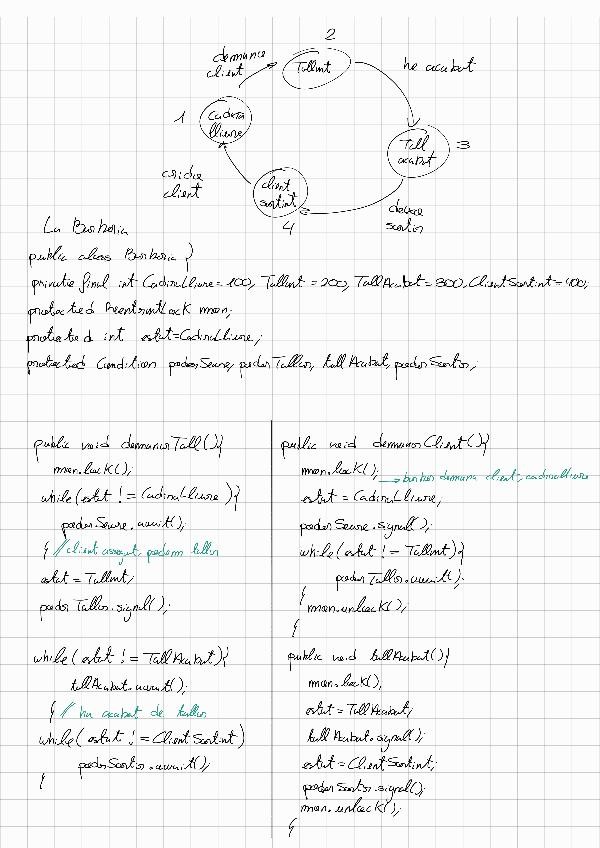 2
demana
client
Tallant
he acabat
1
Cadira
lliure
Tall
acabat
3
cridar
client
client
sortint
4
deixar
sortir
La Barberia
public class Barberia {
private final int CadiraLliure = 100, Tallant = 200, TallAcabat = 300, ClientSortint = 400;
protected ReentrantLock mon;
protected int estat = CadiraLliure;
protected Condition poderSeure, poderTallar, tallAcabat, poderSortir;
public void demanarTall(){
mon.lock();
while(estat != CadiraLliure){
poderSeure.await();
} // client assegut, podem tallar
estat = Tallant;
poderTallar.signal();
while(estat != TallAcabat){
tallAcabat.await();
} // ha acabat de tallar
while(estat != ClientSortint)
poderSortir.await();
}
public void demanarClient(){
mon.lock(); → barber demana client, cadiralliure
estat = CadiraLliure;
poderSeure.signal();
while(estat != Tallant){
poderTallar.await();
}
mon.unlock();
}
public void tallAcabat(){
mon.lock();
estat = TallAcabat;
tallAcabat.signal();
estat = ClientSortint;
poderSortir.signal();
mon.unlock();
}